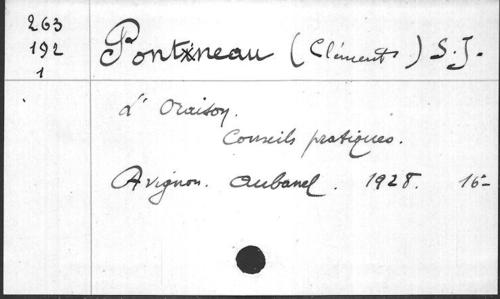 263
192
1
Pontineau (Clément) S.J.
L'Oraison.
Conseils pratiques.
Avignon. Aubanel. 1928. 16-